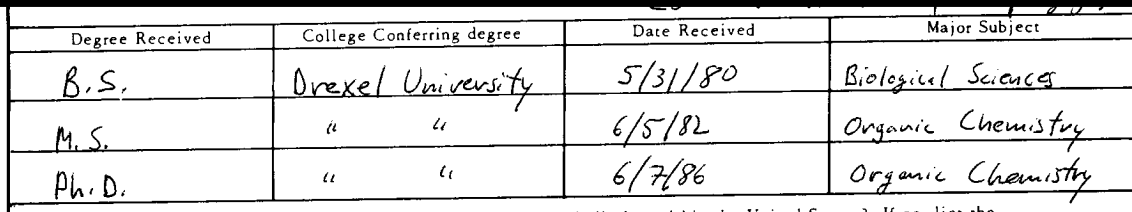 Degree Received College Conferring degree Date Received Major Subject
B.S. Drexel University 5/31/80 Biological Sciences
M.S. " " 6/5/82 Organic Chemistry
Ph.D. " " 6/7/86 Organic Chemistry